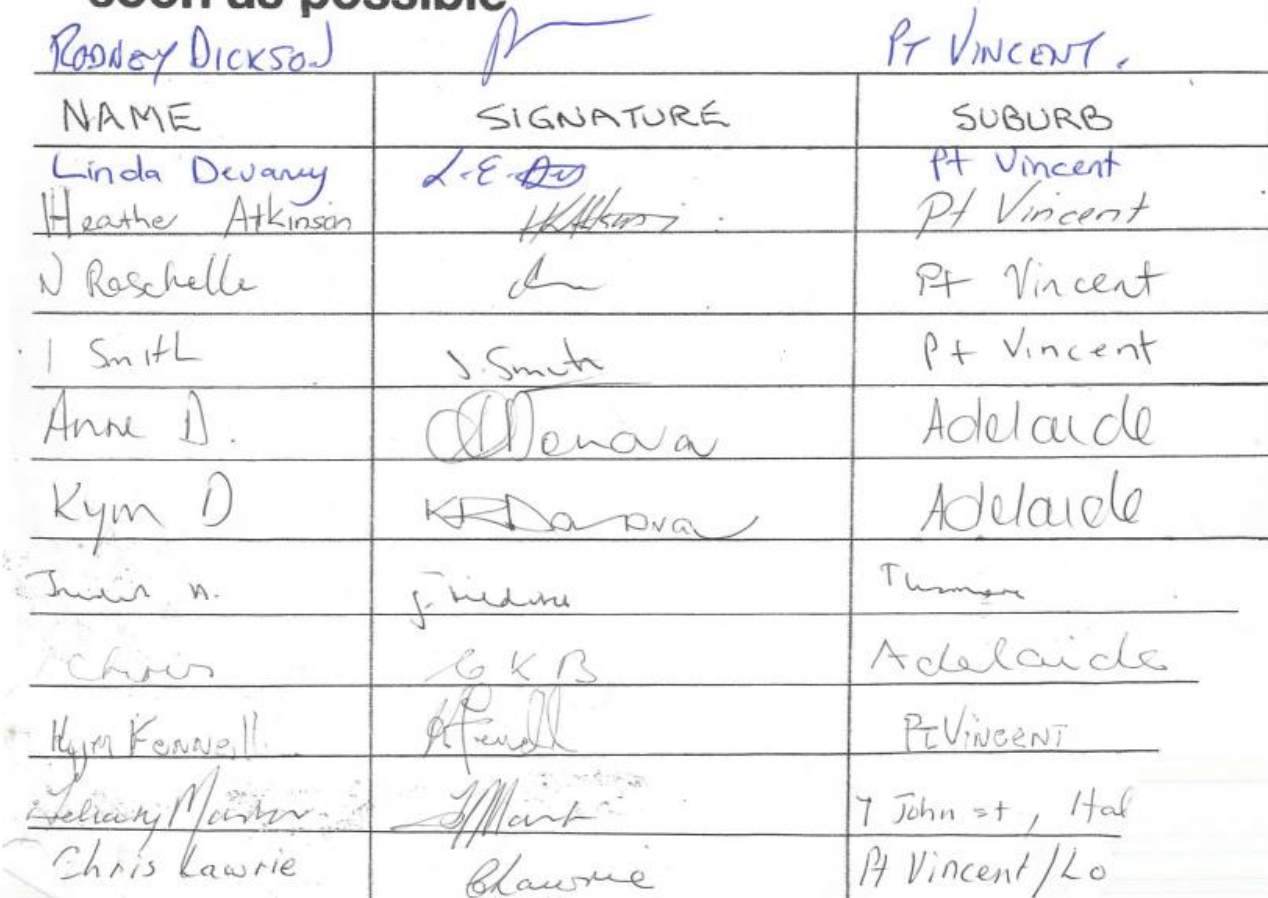 soon as possible
RODNEY DICKSON PT VINCENT.
NAME SIGNATURE SUBURB
Linda Devaney L.E. Pt Vincent
Heather Atkinson HKAtkinson Pt Vincent
N Raschelle Pt Vincent
I Smith I. Smith Pt Vincent
Anne D. Adelaide
Kym D KRDonovan Adelaide
Chris C K B Adelaide
Kym Fennell KFennell Pt VINCENT
Martin 7 John st, Hal
Chris Lawrie CLawrie Pt Vincent/Lo